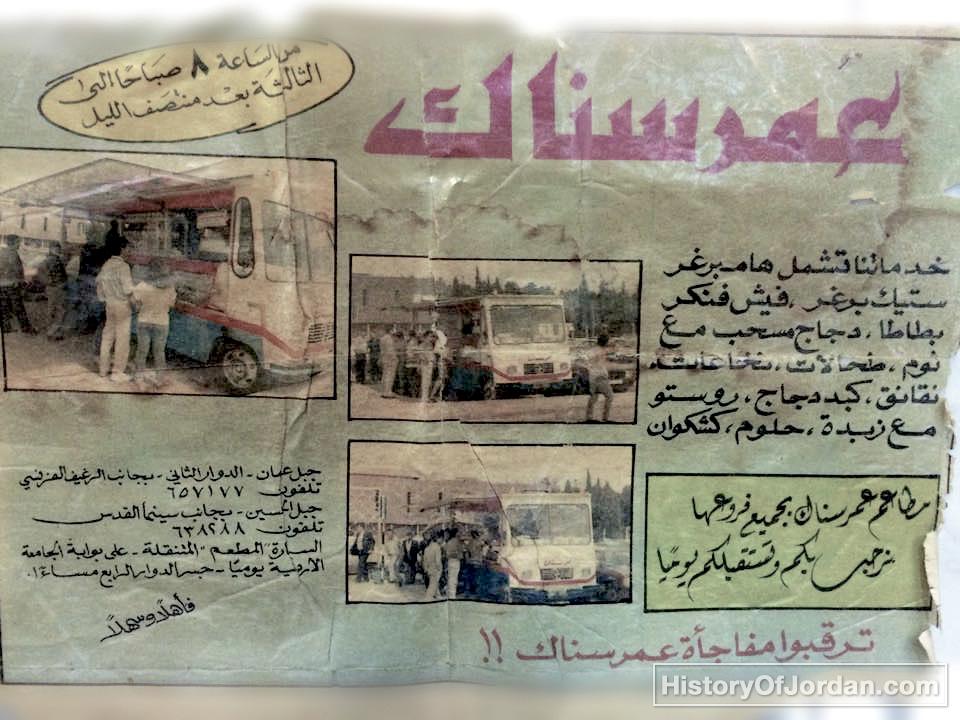 عُمر سناك
من السَاعة ٨ صبَاحًا الى
الثالثة بعد منتصف الليل
خدماتنا تشمل هامبرغر
ستيك برغر ، فيش فنكر
بطاطا ، دجاج مسحب مع
توم ، طحالات ، نخاعات ،
نقانق ، كبد دجاج ، روستو
مع زبدة ، حلوم ، كشكوان
مطاعم عمر سناك بجميع فروعها
ترحب بكم وتستقبلكم يوميًا
جبل عمان - الدوار الثاني - بجانب الرغيف الفرنسي
تلفون ٦٥٧١٧٧
جبل الحسين - بجانب سينما القدس
تلفون ٦٣٨٢٨٨
السيارة "المطعم المتنقلة" - على بوابة الجامعة
الاردنية يوميًا - جسر الدوار الرابع مساءًا .
فأهلاً وسهلاً
ترقبوا مفاجأة عمر سناك !!
HistoryOfJordan.com